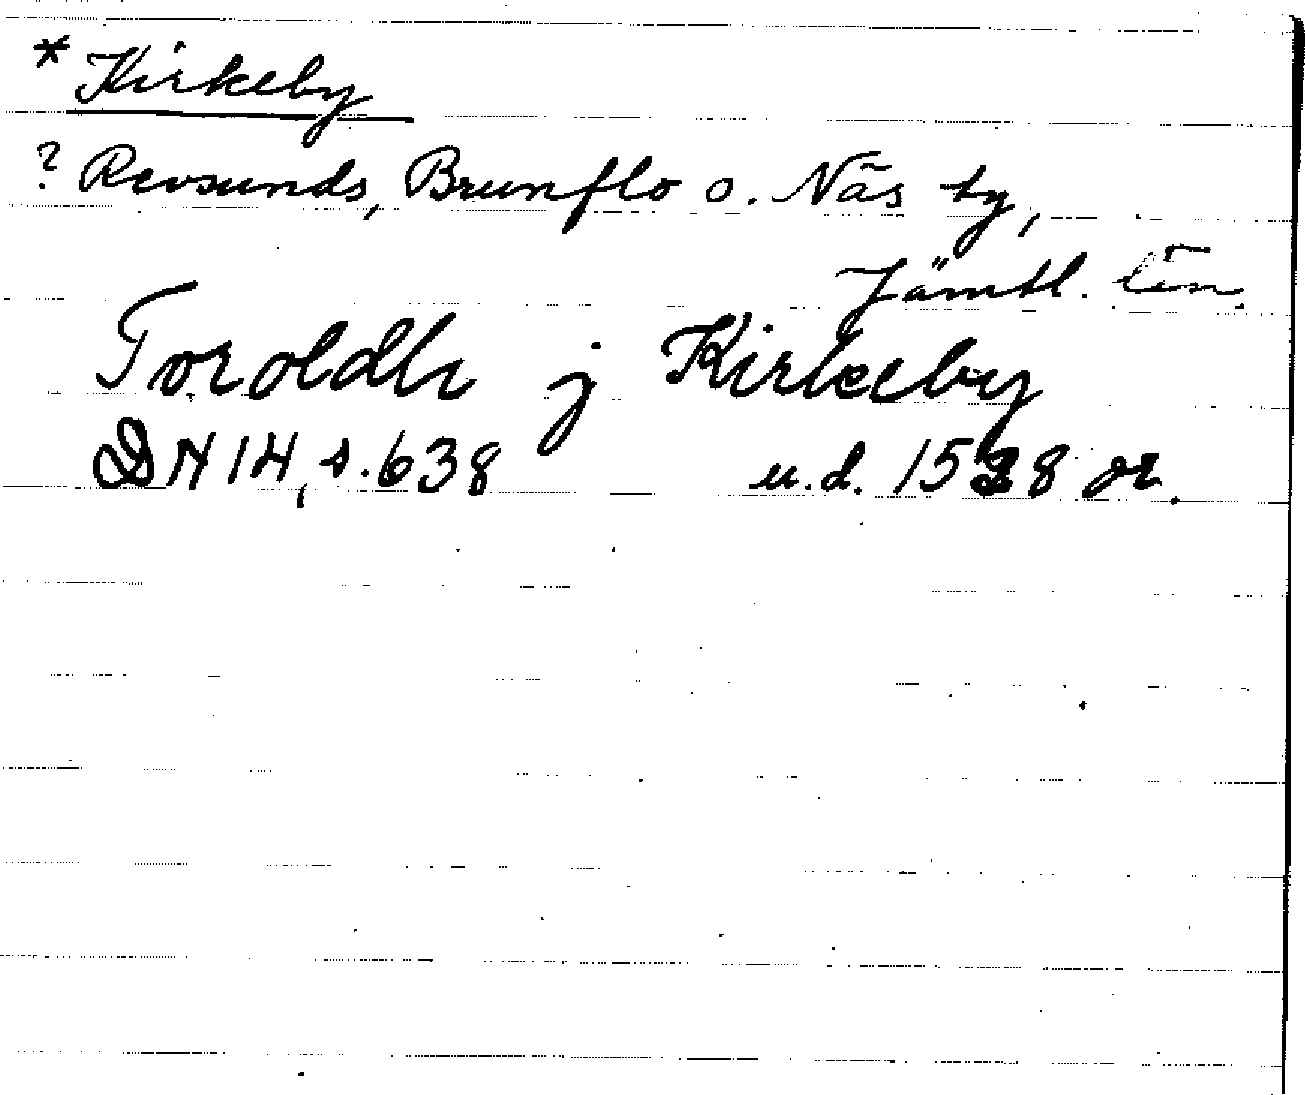 * Kirkeby
? Revsunds, Brunflo o. Näs tg,
Jämtl. län.
Toroldh j Kirkeby
DN 14, s. 638 u.d. 1528 or.